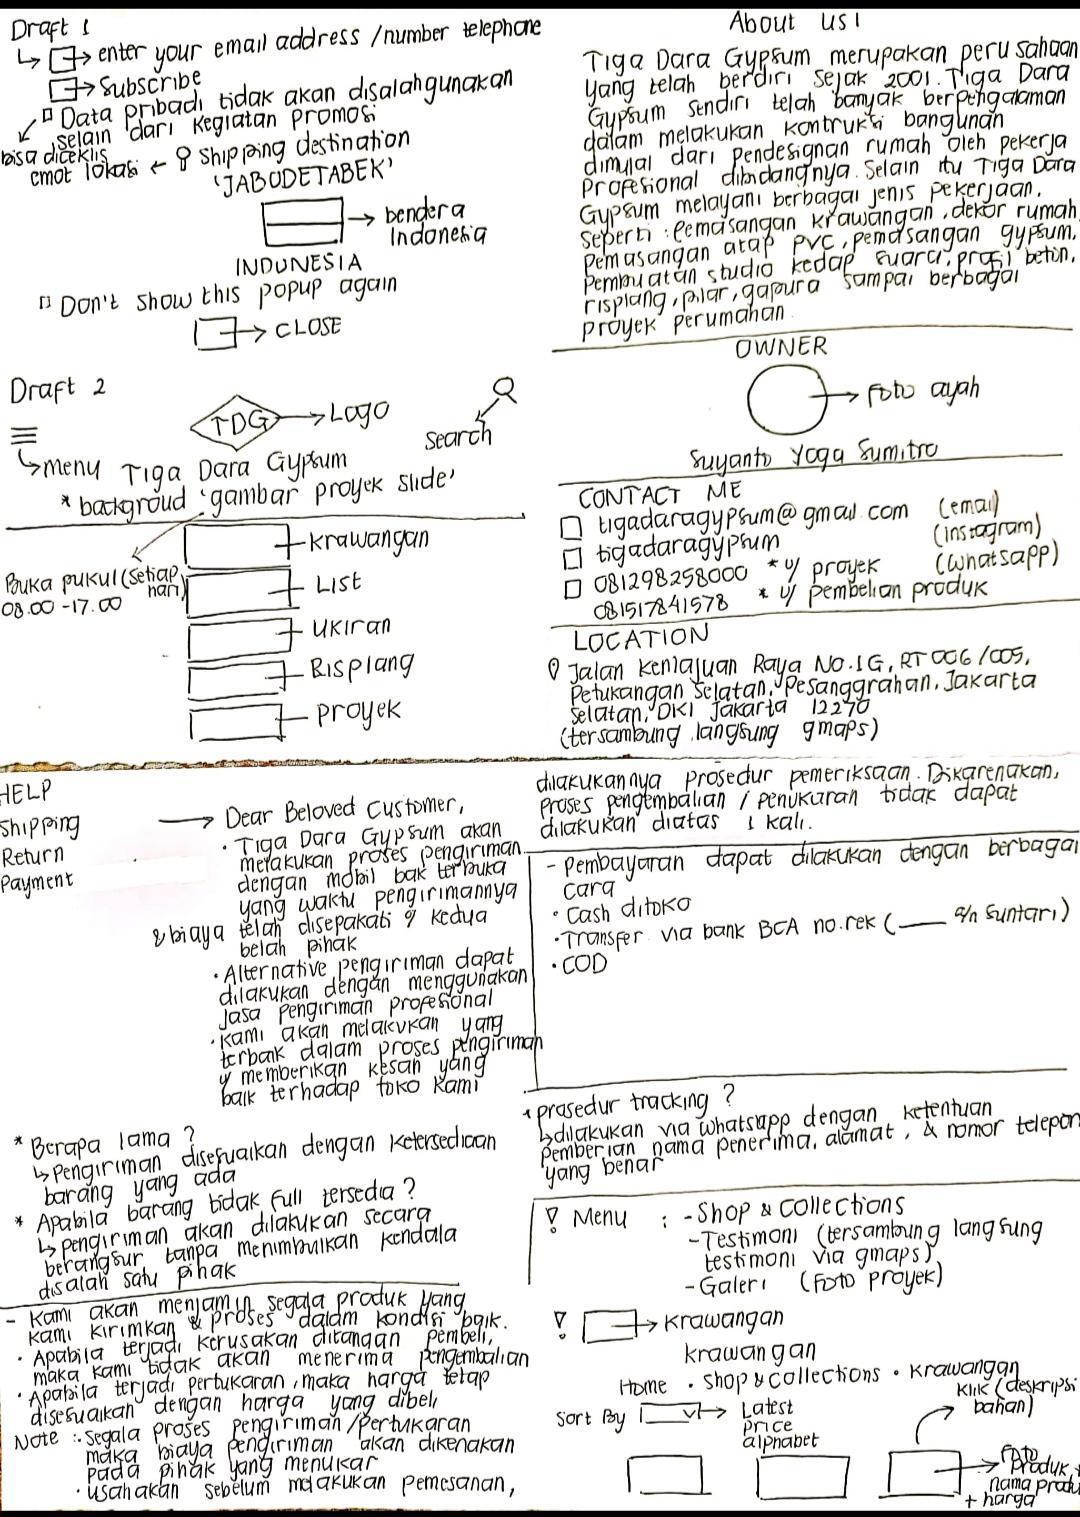 Draft 1
↳ → enter your email address / number telephone
→ Subscribe
Data pribadi tidak akan disalahgunakan
selain dari kegiatan promosi
bisa diceklis
emot lokasi ← Shipping destination
'JABODETABEK'
→ bendera
Indonesia
INDONESIA
Don't show this popup again
→ CLOSE
Draft 2
TDG → Logo
search
↳ menu Tiga Dara Gypsum
* backgroud 'gambar proyek slide'
Buka pukul (setiap
hari)
08.00 - 17.00
krawangan
List
ukiran
Risplang
proyek
About us!
Tiga Dara Gypsum merupakan perusahaan
yang telah berdiri sejak 2001. Tiga Dara
Gypsum sendiri telah banyak berpengalaman
dalam melakukan kontruksi bangunan
dimulai dari pendesignan rumah oleh pekerja
Profesional dibidangnya. Selain itu Tiga Dara
Gypsum melayani berbagai jenis pekerjaan.
seperti : Pemasangan krawangan, dekor rumah,
Pemasangan atap PVC, pemasangan gypsum,
Pembuatan studio kedap suara, profil beton,
risplang, pilar, gapura sampai berbagai
proyek perumahan.
OWNER
→ Foto ayah
Suyanto Yoga Sumitro
CONTACT ME
tigadaragypsum@gmail.com (email)
tigadaragypsum (instagram)
081298258000 * u/ proyek (whatsapp)
081517841578 * u/ pembelian produk
LOCATION
Jalan Kemajuan Raya NO.1G, RT 006/005,
Petukangan Selatan, Pesanggrahan, Jakarta
Selatan, DKI Jakarta 12270
(tersambung langsung gmaps)
HELP
Shipping
Return
Payment
→ Dear Beloved Customer,
• Tiga Dara Gypsum akan
melakukan proses pengiriman
dengan mobil bak terbuka
yang waktu pengirimannya
& biaya telah disepakati kedua
belah pihak
• Alternative pengiriman dapat
dilakukan dengan menggunakan
jasa pengiriman profesional
• kami akan melakukan yang
terbaik dalam proses pengiriman
u/ memberikan kesan yang
baik terhadap toko kami
* Berapa lama ?
↳ Pengiriman disesuaikan dengan ketersediaan
barang yang ada
* Apabila barang tidak full tersedia ?
↳ pengiriman akan dilakukan secara
berangsur tanpa menimbulkan kendala
disalah satu pihak
- Kami akan menjamin segala produk yang
kami kirimkan & proses dalam kondisi baik.
• Apabila terjadi kerusakan ditangan pembeli,
maka kami tidak akan menerima pengembalian
• Apabila terjadi pertukaran, maka harga tetap
disesuaikan dengan harga yang dibeli
Note : • Segala proses pengiriman / Pertukaran
maka biaya pengiriman akan dikenakan
pada pihak yang menukar
• usahakan sebelum melakukan pemesanan,
dilakukannya prosedur pemeriksaan. Dikarenakan,
proses pengembalian / penukaran tidak dapat
dilakukan diatas 1 kali.
- Pembayaran dapat dilakukan dengan berbagai
cara
• Cash ditoko
• Transfer via bank BCA no.rek (___ a/n Suntari)
• COD
* prosedur tracking ?
↳ dilakukan via whatsapp dengan ketentuan
Pemberian nama penerima, alamat, & nomor telepon
yang benar
Menu : - Shop & Collections
- Testimoni (tersambung langsung
testimoni via gmaps)
- Galeri (Foto proyek)
→ krawangan
krawangan
Home • Shop & Collections • krawangan
Klik (deskripsi
bahan)
Sort By → Latest
price
alphabet
→ Foto
Produk +
nama produk
+ harga